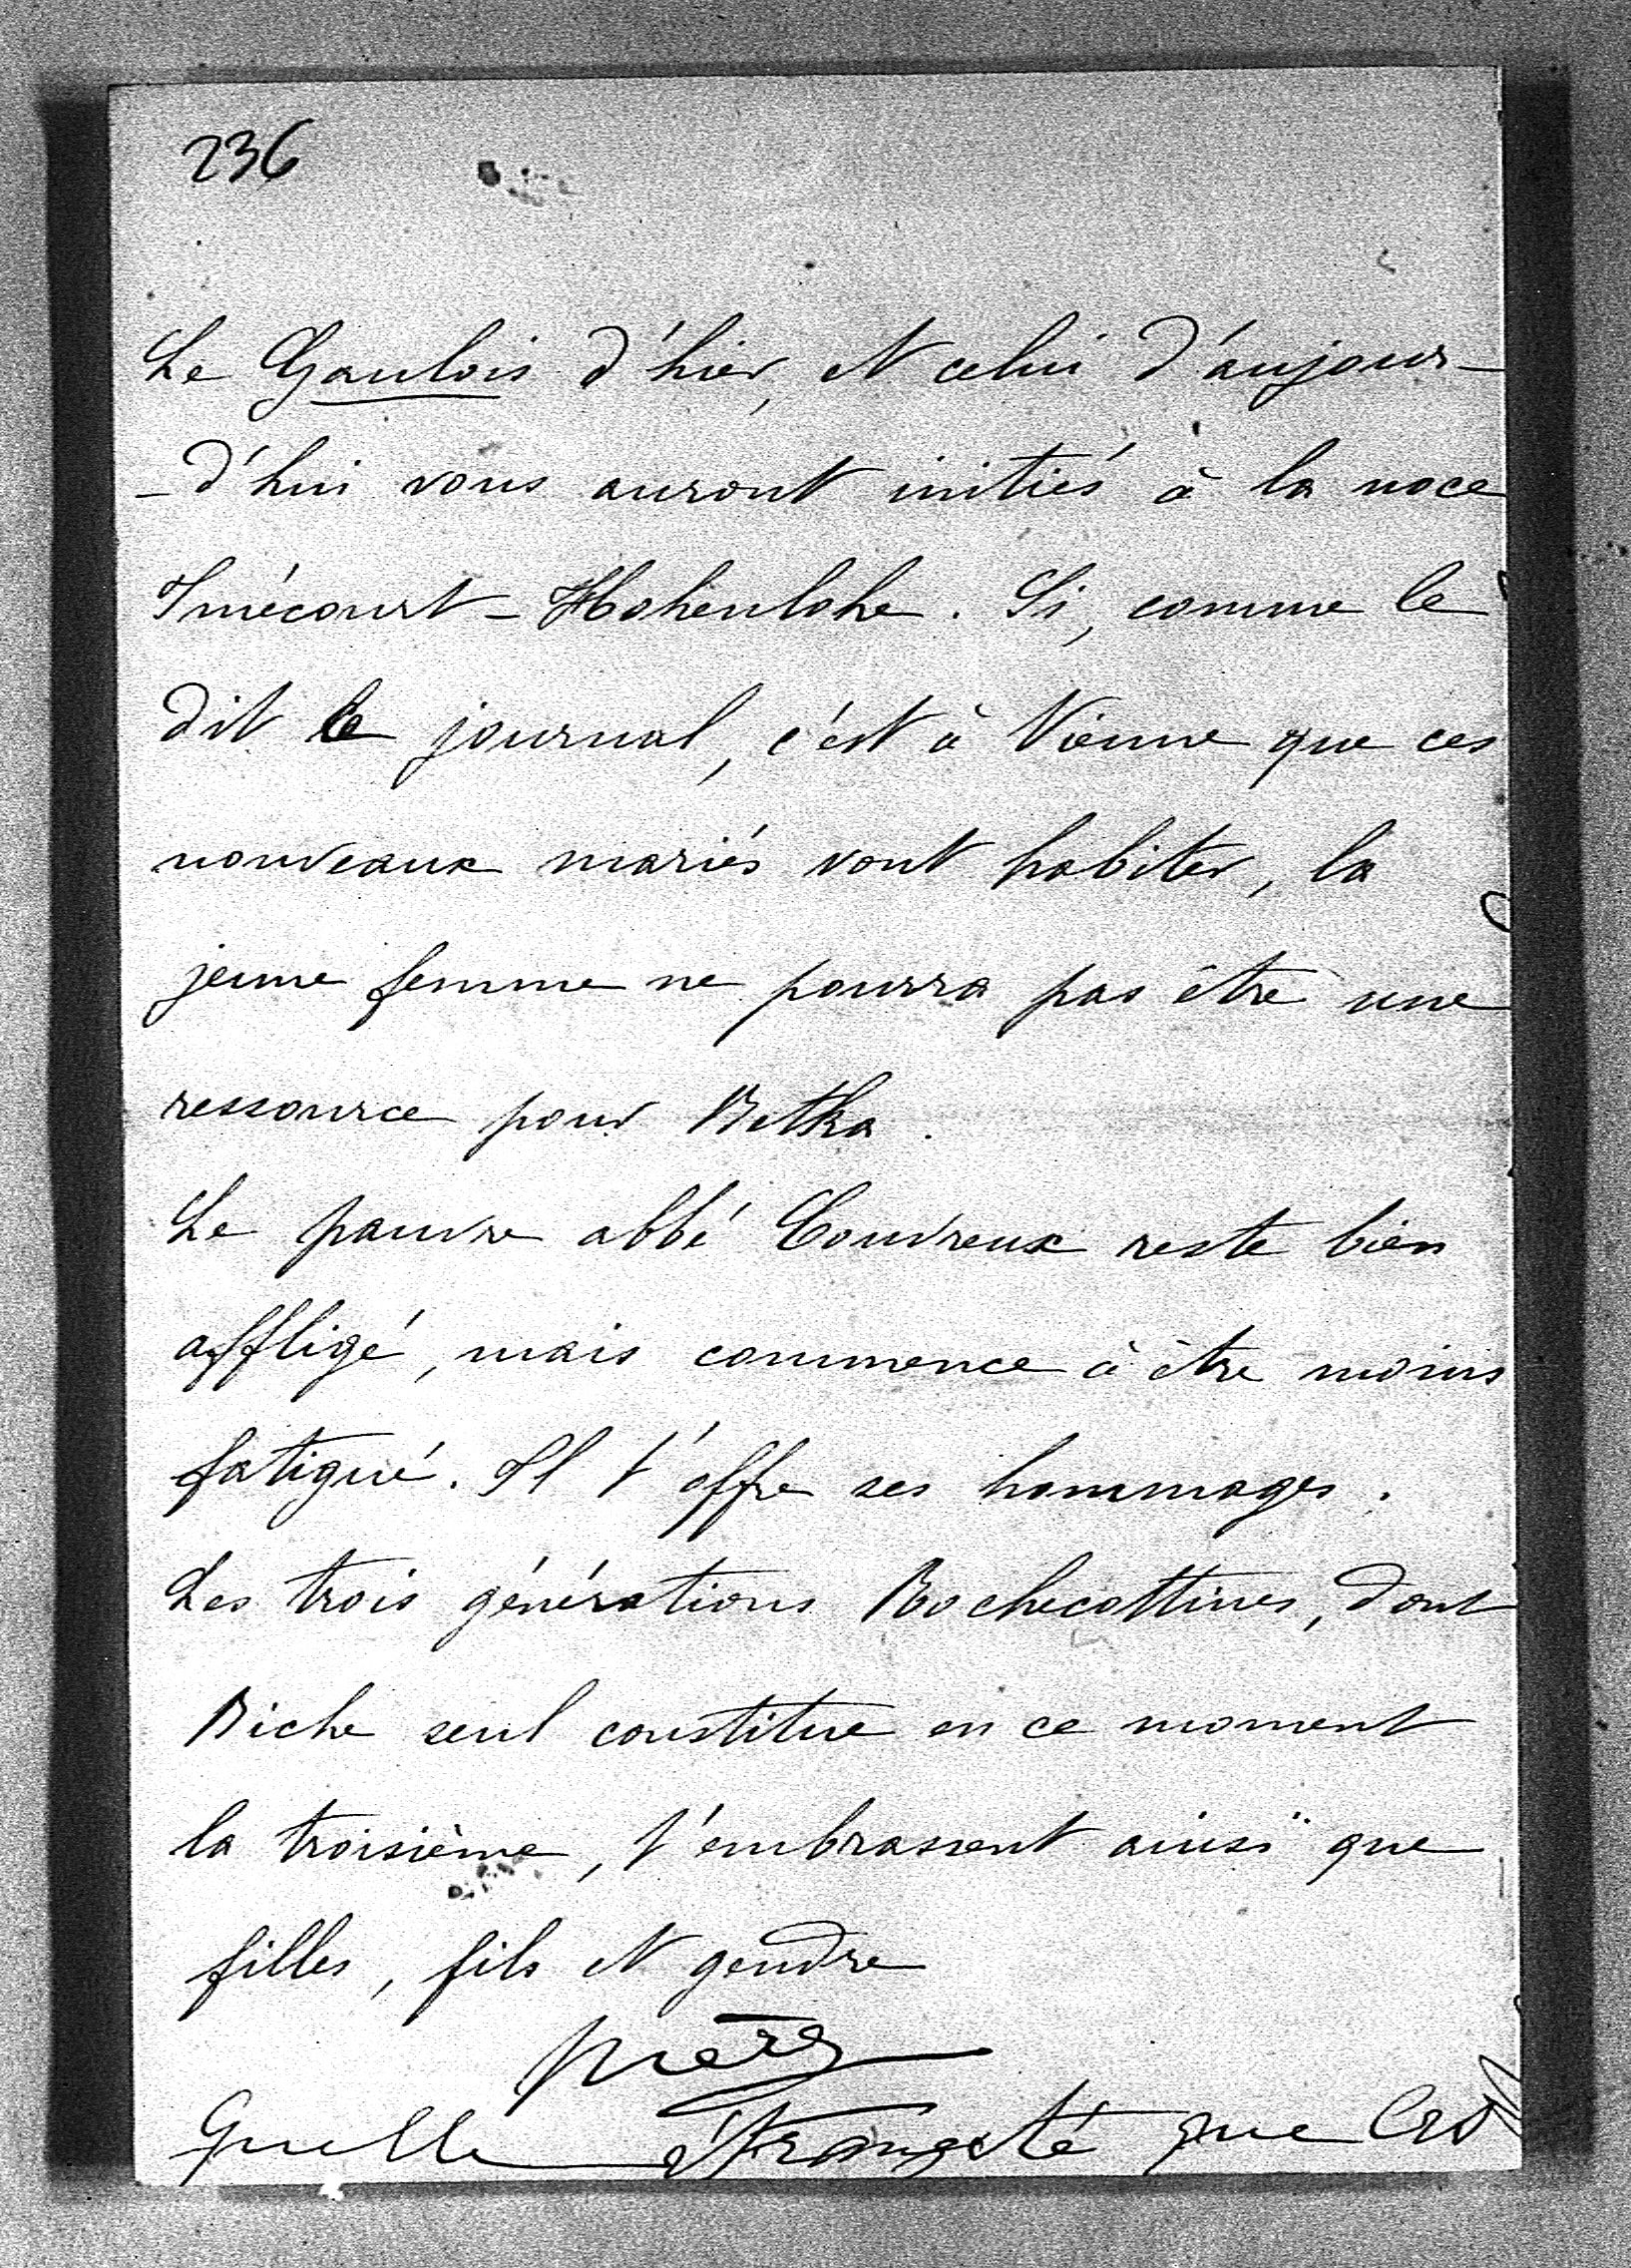 236
Le Gaulois d'hier, et celui d'aujour-
-d'hui vous auront initiés à la noce
Imécourt - Hohenlohe. Si, comme le
dit le journal, c'est à Vienne que ces
nouveaux mariés vont habiter, la
jeune femme ne pourra pas être une
ressource pour Betka.
Le pauvre abbé Couvreux reste bien
affligé, mais commence à être moins
fatigué. Il t'offre ses hommages.
Les trois générations Rochecottines, dont
Biche seul constitue en ce moment
la troisième, t'embrassent ainsi que
filles, fils et gendre
Quelle étrangeté que